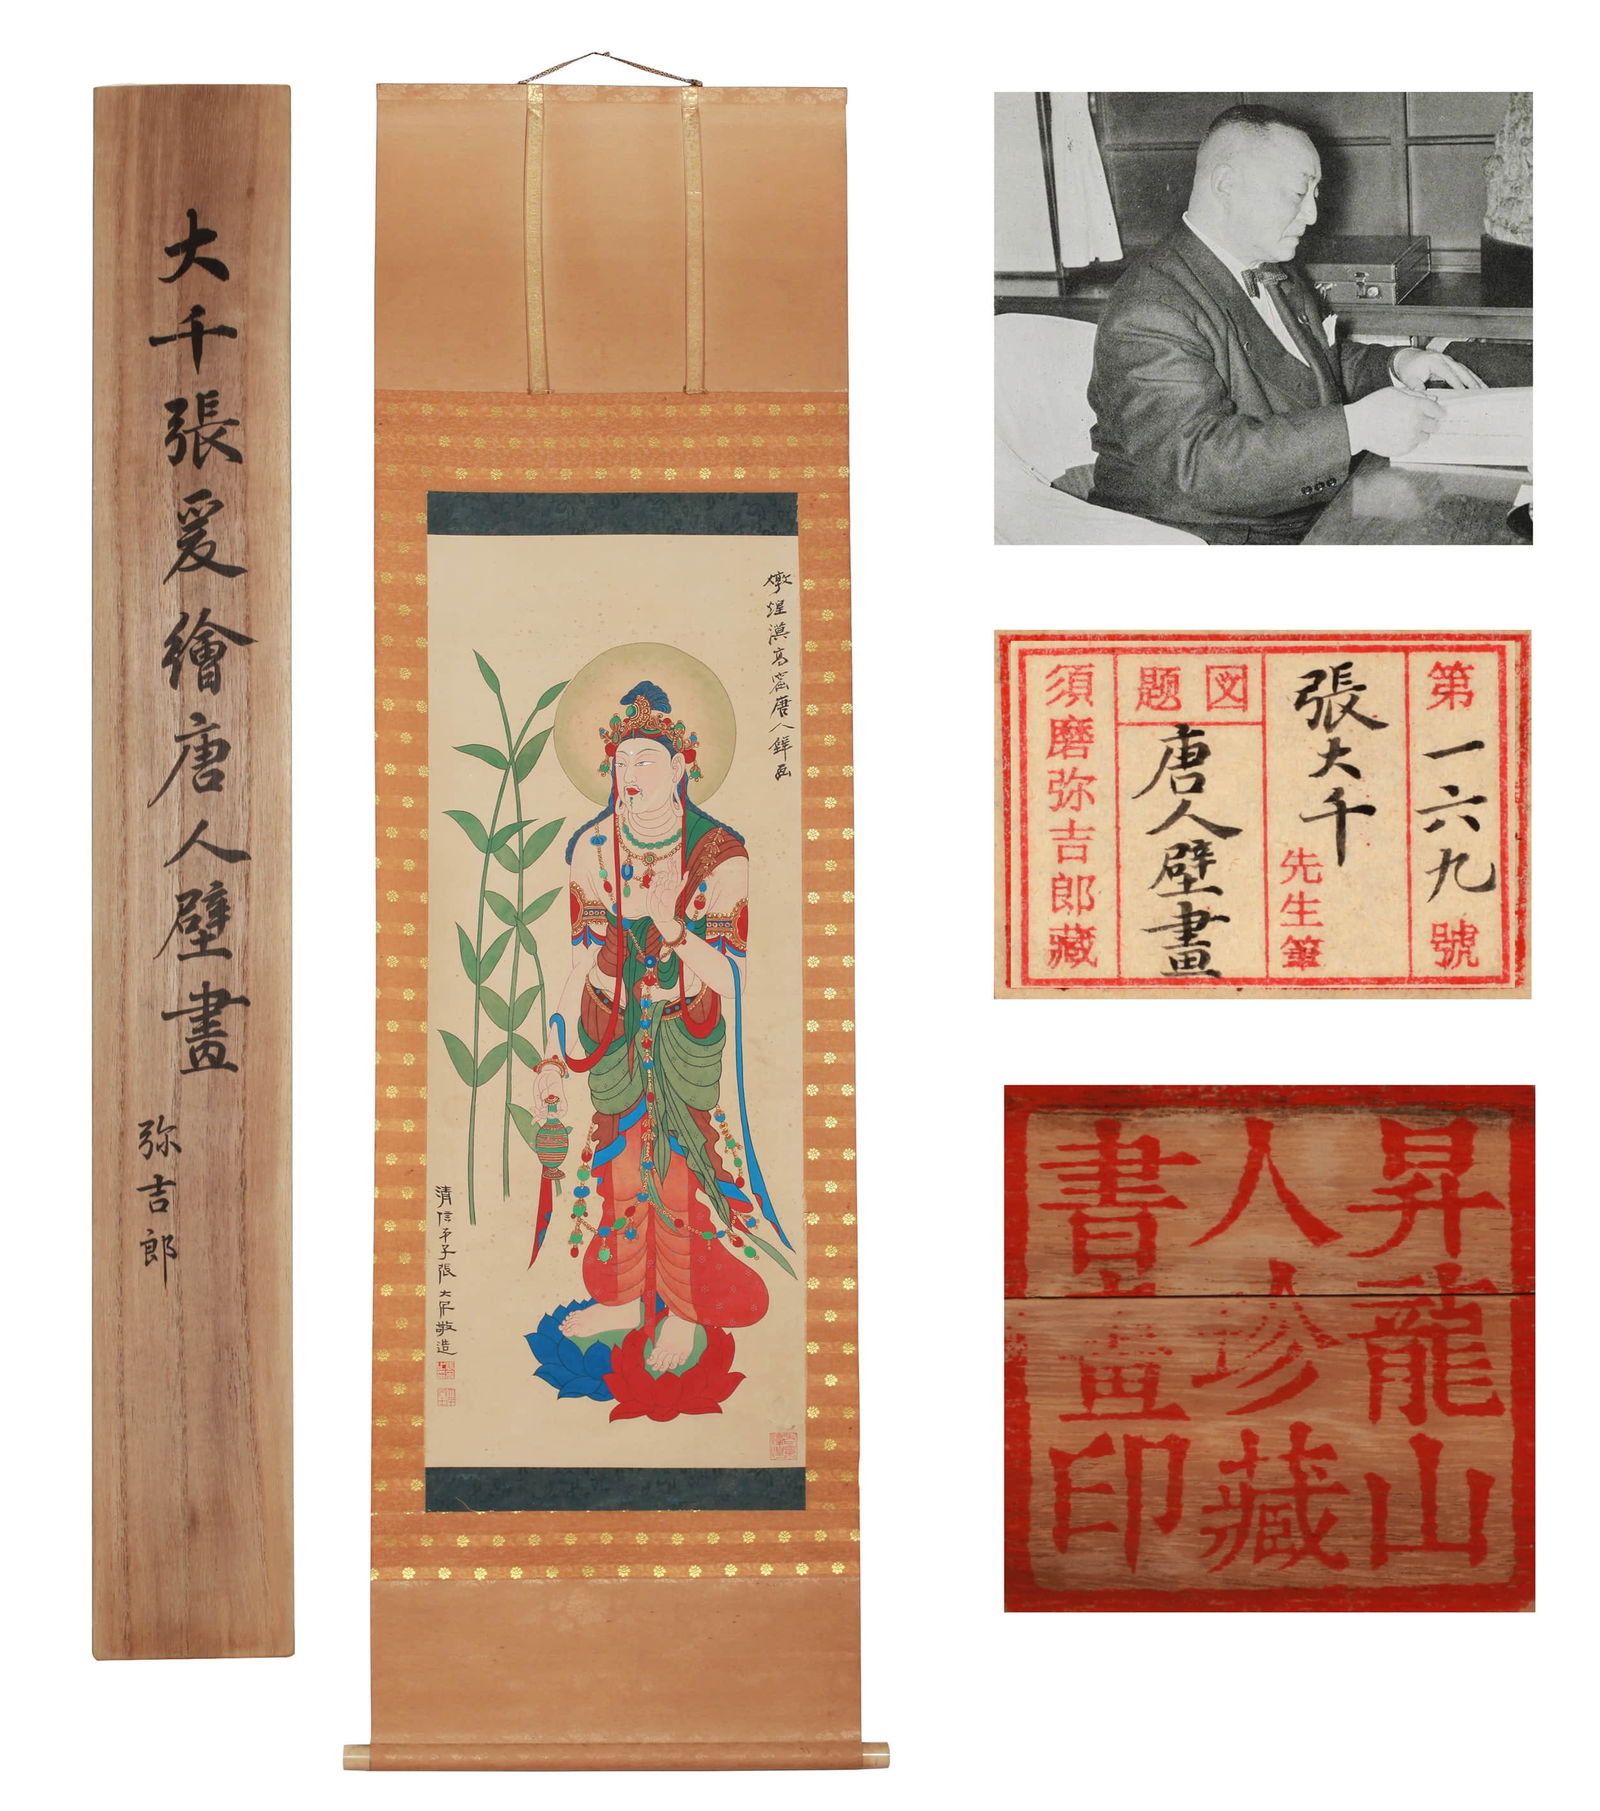 大千張爰繪唐人壁畫
弥吉郎
燉煌漠高窟唐人壁画
清信弟子張大千敬造
第一六九號
張大千先生筆
図題
唐人壁畫
須磨弥吉郎藏
昇龍山
人珍藏
書畫印